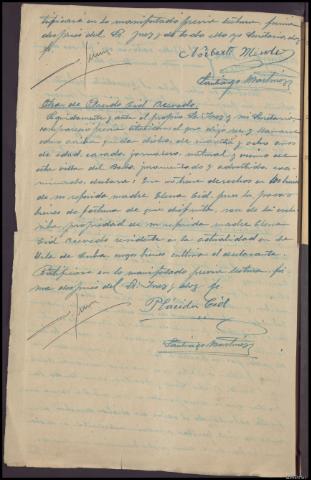 tificará en lo manifestado previa lectura firma
después del Sr. Juez, de todo lo yo Secretario doy
fé.
Norberto
Santiago Martínez
Otra de Plácido Cid Acevedo.
Seguidamente y ante el propio Sr. Juez y mi Secretario
comparece previa citación el que dijo ser y llamarse
como arriba queda dicho, de cuarenta y ocho años
de edad, casado, jornalero, natural y vecino de
esta villa del Bollo, juramentado y advertido exa-
minado, declara: Que
de mi referida madre Elena Cid, pues la poseo
bienes de fortuna de que disfruto, son de la exclu
siva propiedad de mi referida madre Elena
Cid Acevedo residente en la actualidad en la
Isla de Cuba cuyos bienes cultiva el declarante.
Ratificase en lo manifestado previa lectura fir
ma después del Sr. Juez y doy fé
Plácido Cid
Santiago Martínez